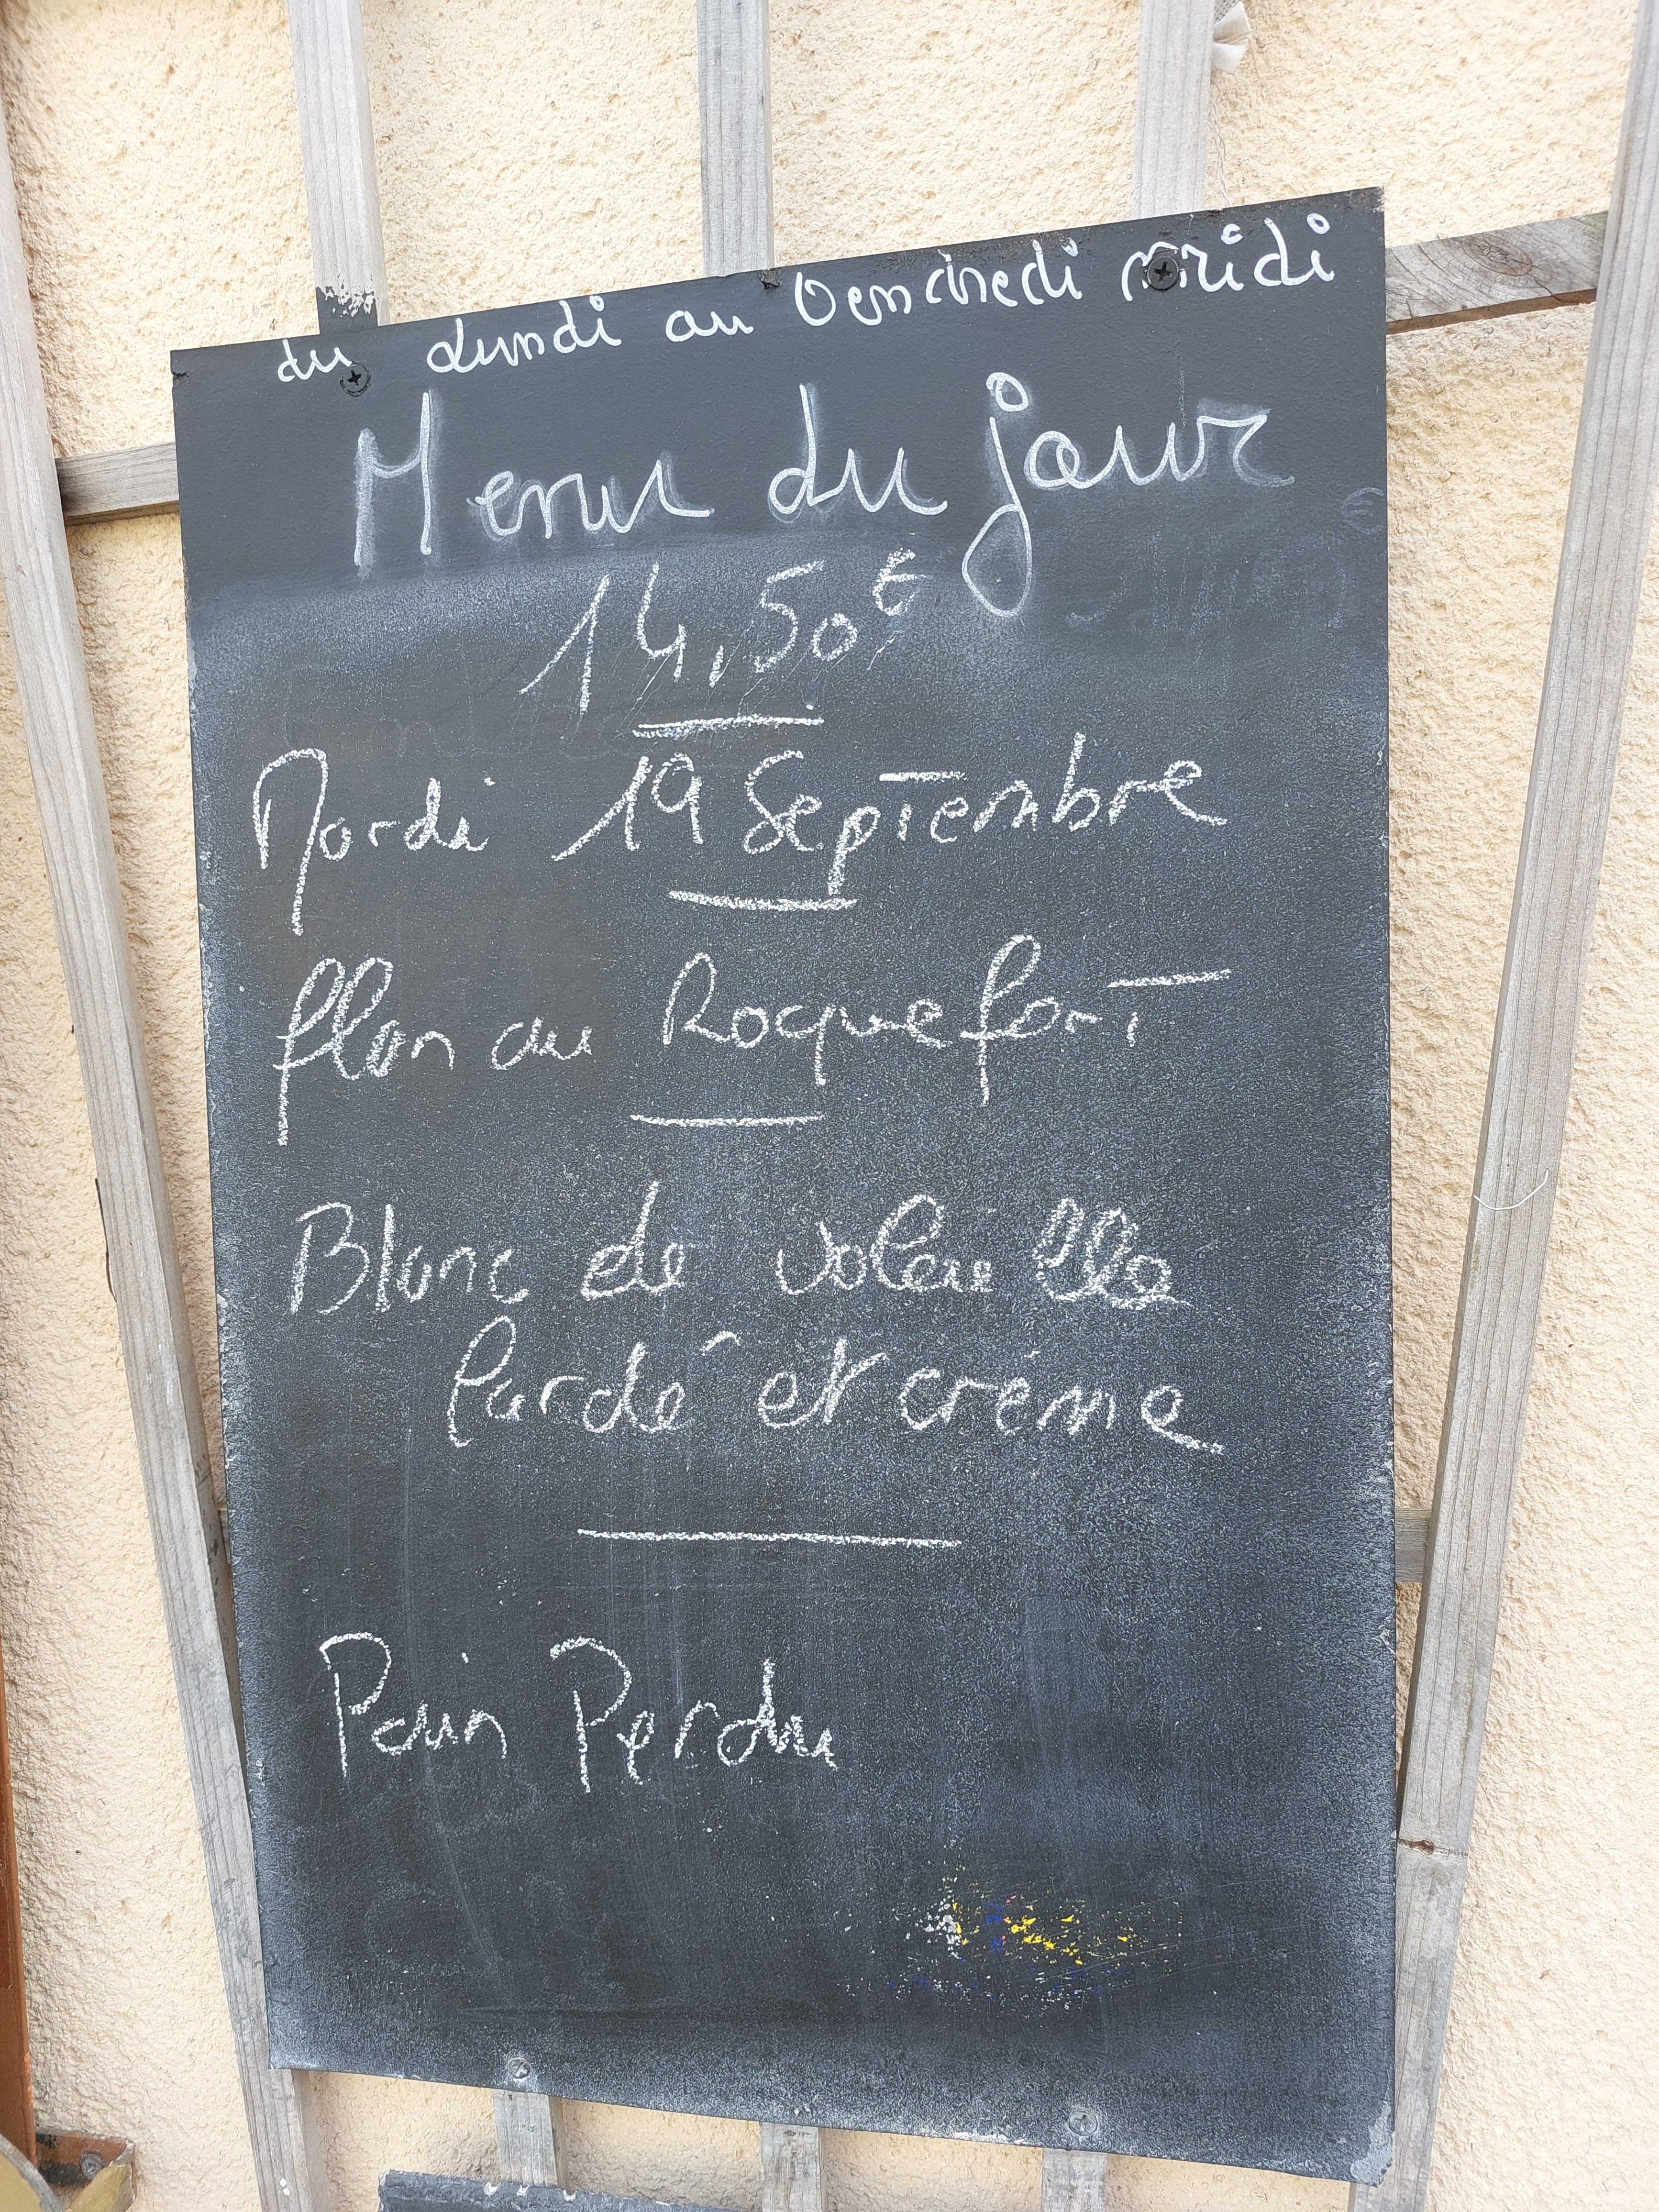 du Lundi au Vendredi midi
Menu du jour
14,50€
Mardi 19 Septembre
flan au Roquefort
Blanc de volaille
lardé et crème
Pain Perdu